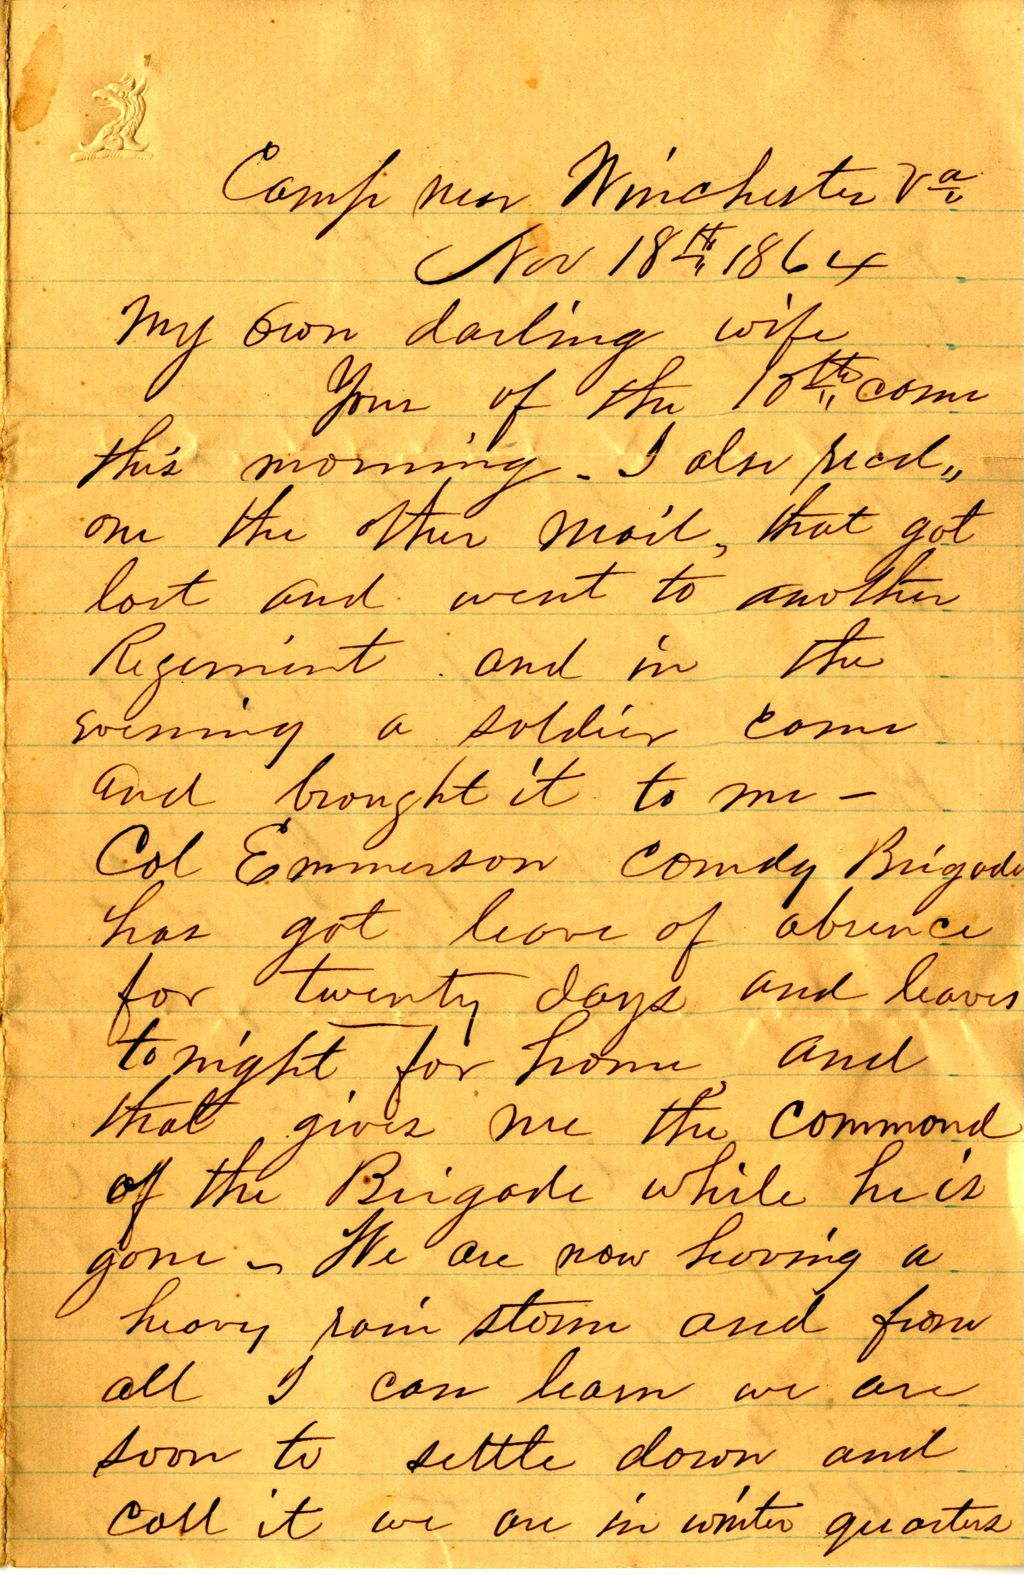 Camp near Winchester Va
Nov 18th 1864
My own darling wife
Your of the 10th come
this morning - I also recd,,
one the other mail, that got
lost and went to another
Regemint and in the
evening a soldier come
and brought it to me -
Col Emmerson comdg Brigade
has got leave of absence
for twenty days and leaves
tonight for home, and
that gives me the command
of the Brigade while he is
gone - We are now having a
heavy rain storm and from
all I can learn we are
soon to settle down and
call it we are in winter quarters